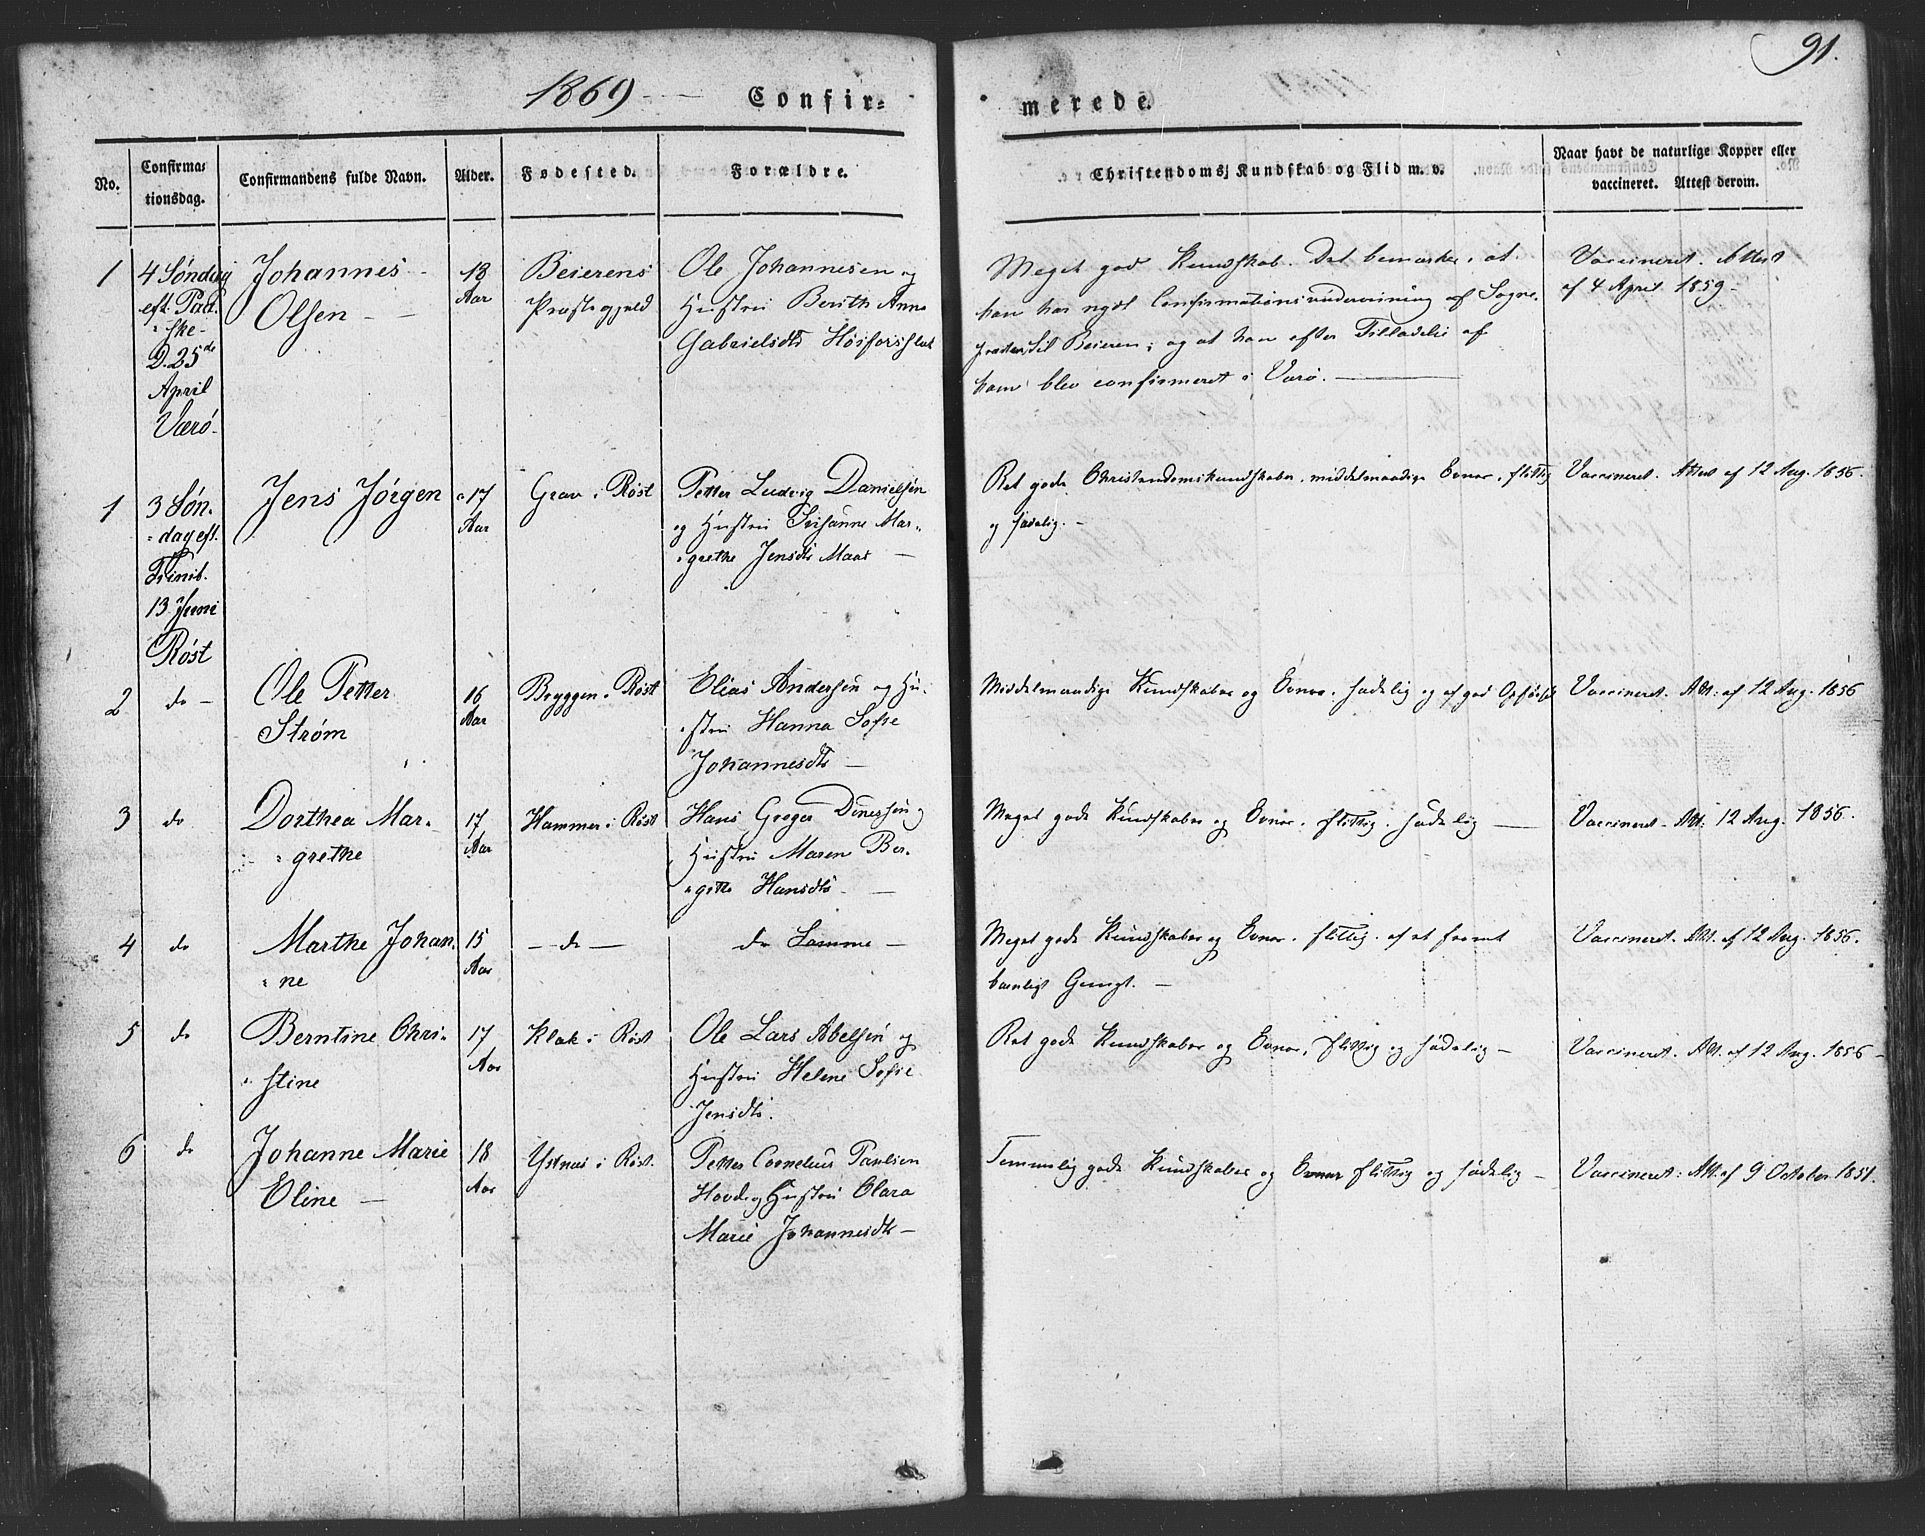 91.
1869 — Confir= merede.
No. Confirma= tionsdag. Confirmandens fulde Navn. Alder. Fødested. Forældre. Christendoms, Kundskab og Flid m. v. Naar havt de naturlige Kopper eller vaccineret. Attest derom.
1 4 Søndag Johannes 18 Beierens Ole Johannesen og Meget god Kundskab. Det bemærkes, at Vaccineret. Attest
eft. Paa- Olsen — Aar Præstegjeld Hustru Berith Anna han har nydt Confirmationsunderviisning af Sogne- af 4 April 1859 —
ske — Gabrielsdtr præsten til Beieren, og at han efter Tilladelse af
D. 25de ham blev confirmeret i Værø. —
April
Værø.
1 3 Søn- Jens Jørgen 17 Grav i Røst Petter Ludvig Danielsen Ret gode Christendomskundskaber, middelmaadige Evner, flittig Vaccineret. Attest af 12 Aug. 1856.
dag eft. Aar og Hustru Susanne Mar- og sædelig. —
Trinit. grethe Jensdtr Maas —
13 Juni
Røst
2 do — Ole Petter 16 Bryggen i Røst Elias Andersen og Hu- Middelmaadige Kundskaber og Evner, sædelig og af god Opførsel Vaccineret. Att: af 12 Aug. 1856
Strøm Aar stru Hanna Sofie
Johannesdtr —
3 do Dorthea Mar- 17 Hammer i Røst Hans Greger og Meget gode Kundskaber og Evner, flittig, sædelig — Vaccineret. Att: 12 Aug. 1856.
grethe Aar Hustru Maren Ber-
gitte Hansdtr —
4 do Marthe Johan- 15 — do — do Samme — Meget gode Kundskaber og Evner, flittig, af et fromt Vaccineret. Att. af 12 Aug. 1856.
ne Aar barnligt —
5 do Berntine Chri- 17 Klak i Røst Ole Lars Abelsen og Ret gode Kundskaber og Evner, flittig og sædelig — Vaccineret. Att. af 12 Aug. 1856 —
stine Aar Hustru Helene Sofie
Jensdtr.
6 do Johanne Marie 18 Ystnæs i Røst. Petter Cornelius Paulsen Temmelig gode Kundskaber og Evner flittig og sædelig — Vaccineret: Att. af 9 October 1851.
Eline — Aar Hovde og Hustru Clara
Marie Johannesdtr —